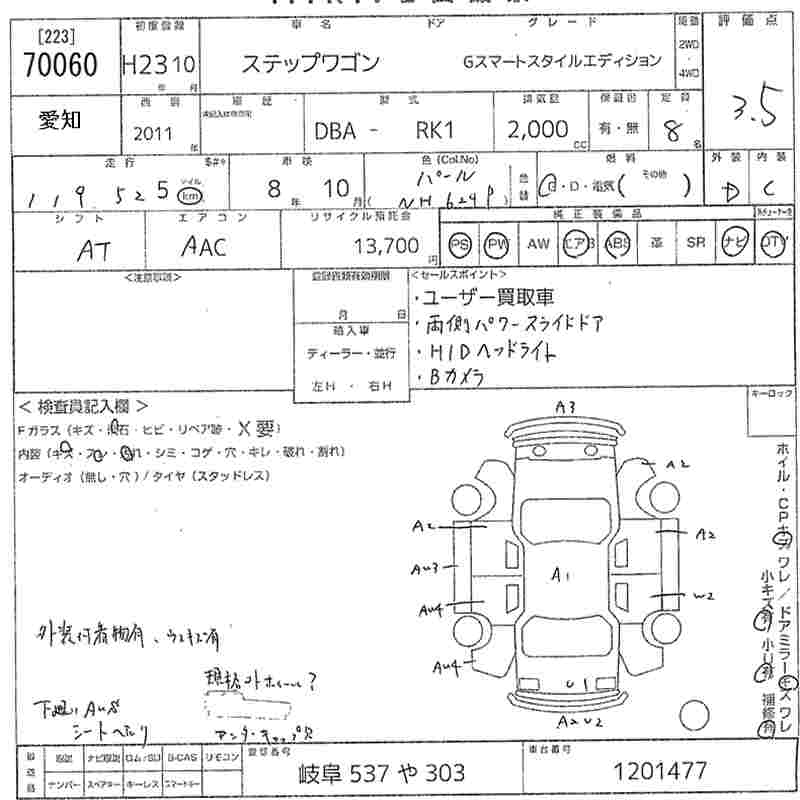 [223]
70060
初度登録
H23 10
年 月
車名
ドア
グレード
ステップワゴン
Gスマートスタイルエディション
2WD
4WD
評価点
3.5
愛知
西暦
2011
年
車歴
型式
DBA - RK1
排気量
2,000
CC
保証書
有・無
定員
8
名
走行
119525
マイル
km
車検
8年 10月
色(Col.No)
パール
NH624P
色替
燃料
G・D・電気( その他 )
外装
D
内装
C
シフト
AT
エアコン
AAC
リサイクル預託金
13,700
円
純正装備品
PS PW AW エアB ABS 革 SR ナビ
<注意事項>
登録書類有効期限
月 日
輸入車
ディーラー・並行
左H ・ 右H
<セールスポイント>
・ユーザー買取車
・両側パワースライドドア
・HIDヘッドライト
・Bカメラ
キーロック
<検査員記入欄>
Fガラス(キズ・飛石・ヒビ・リペア跡・X要)
内装(キズ・スレ・汚れ・シミ・コゲ・穴・キレ・破れ・割れ)
オーディオ(無し・穴)/タイヤ(スタッドレス)
A3
A2
A2
A2
AU3
A1
AU4
W2
AU4
U1
A2U2
ホイル・CPキズワレ/ドアミラーキズワレ
小キズ有 小U有 補修有
外装付着物有、ウスキズ有
規格外ホイール?
下廻りAUS
シートヘタリ
取説 ナビ取説 ロム/SD B-CAS リモコン
ナンバー スペアキー キーレス スマートキー
登録番号
岐阜 537 や 303
車台番号
1201477